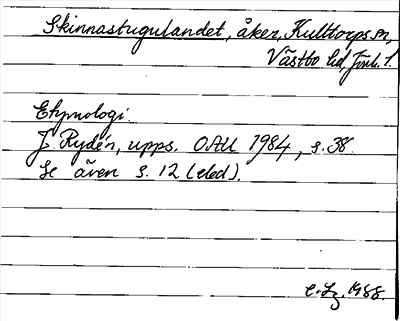 Skinnastugulandet, åker, Kulltorps sn,
Västbo hd, Jönk. l.
Etymologi.
J. Rydén, upps. OAU 1984, s. 38.
Se även s. 12 (eled).
C. Lg. 1988.